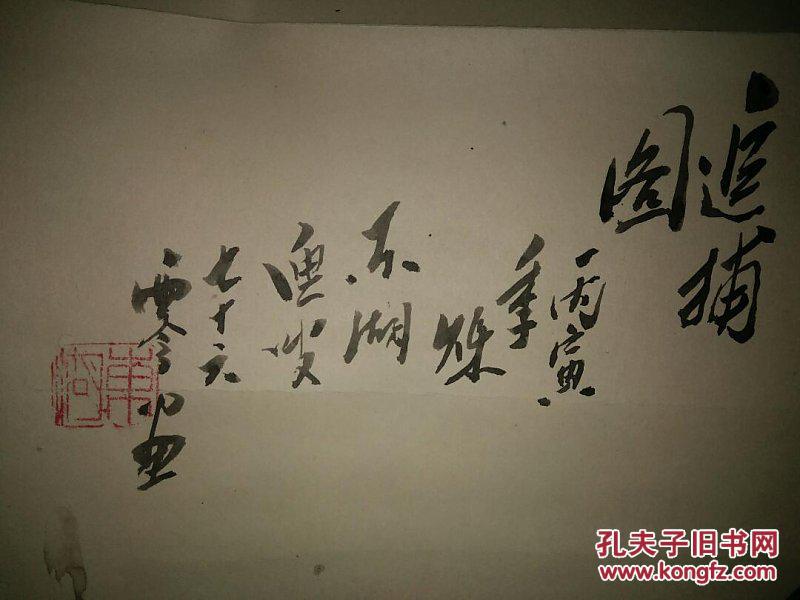 追捕
图
丙寅
季
秌
东湖
渔叟
七十六
画
東湖
孔夫子旧书网
www.kongfz.com